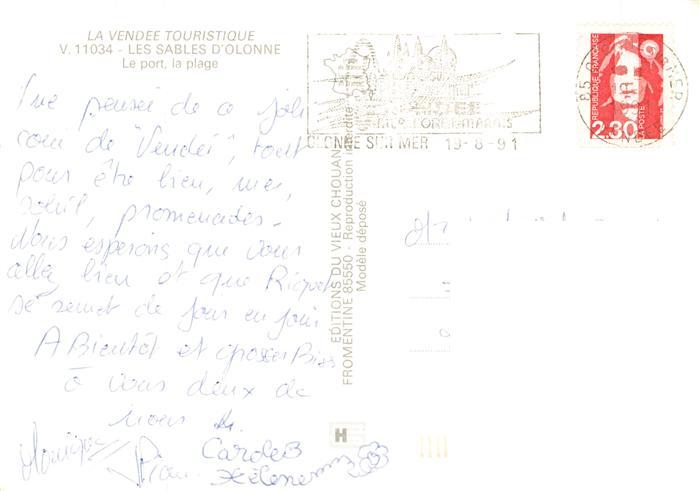 LA VENDEE TOURISTIQUE
V. 11034 - LES SABLES D'OLONNE
Le port, la plage
Une pensée de ce joli
coin de "Vendée", tout
pour être bien, mer,
soleil, promenades.
Nous espérons que vous
allez bien et que Riquet
se remet de jour en jour
A Bientôt et grosses Bises
à vous deux de
nous 4.
Monique Carole
Hélène
EDITIONS DU VIEUX CHOUAN
FROMENTINE 85550 - Reproduction interdite
Modèle déposé
OLONNE SUR MER 19-8-91
REPUBLIQUE FRANÇAISE
LA POSTE
2,30
H